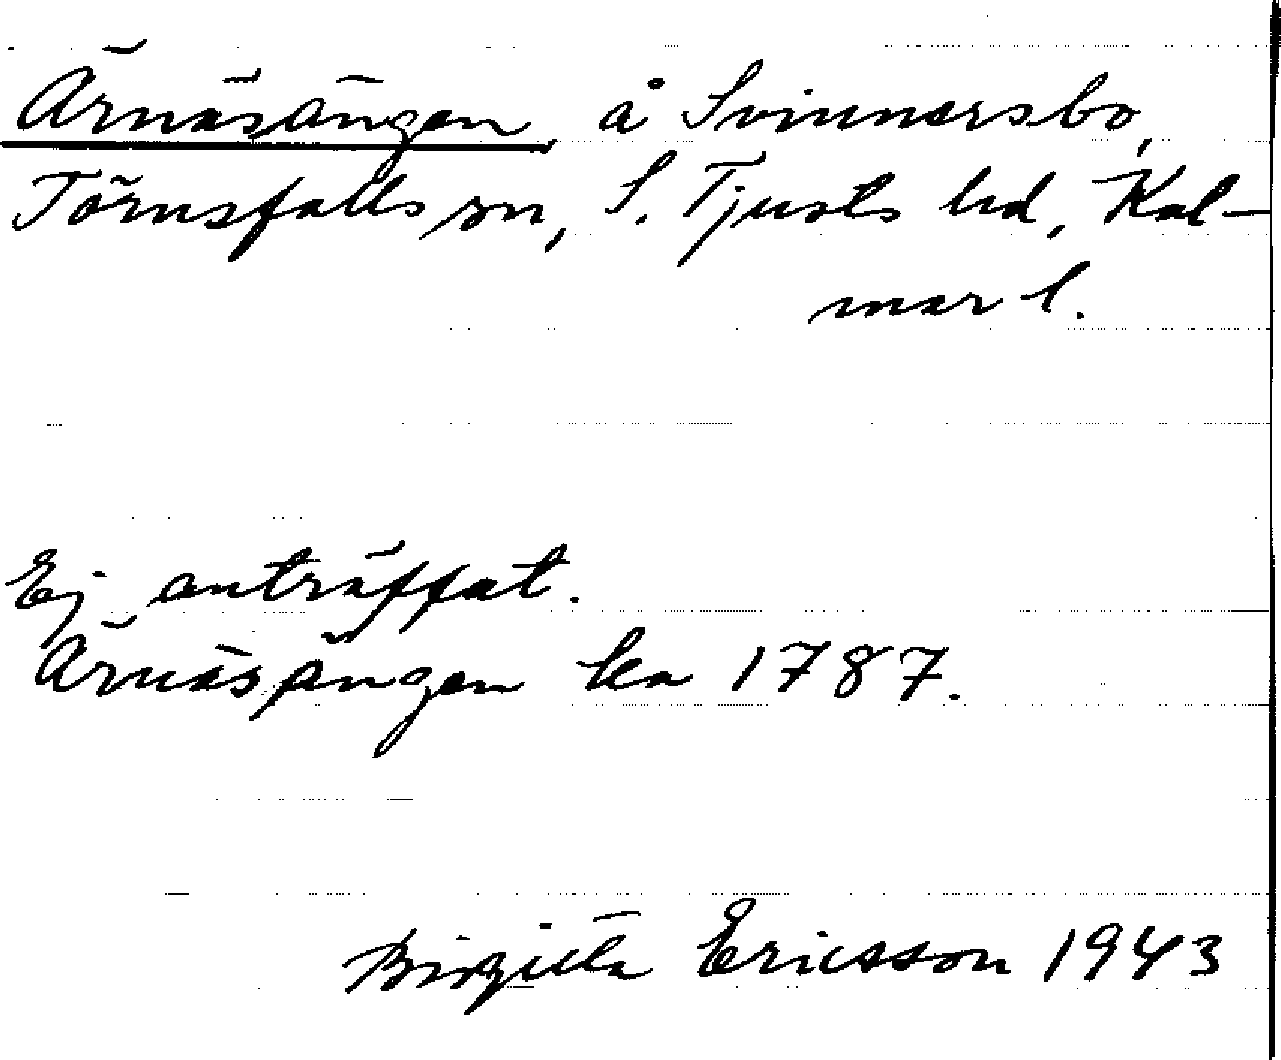 Ärnäsängen å Svinnersbo,
Törnsfalls sn, S. Tjusts hd, Kal-
mar l.
Ej anträffat.
Ärnäsängen lea 1787.
Birgitta Ericsson 1943